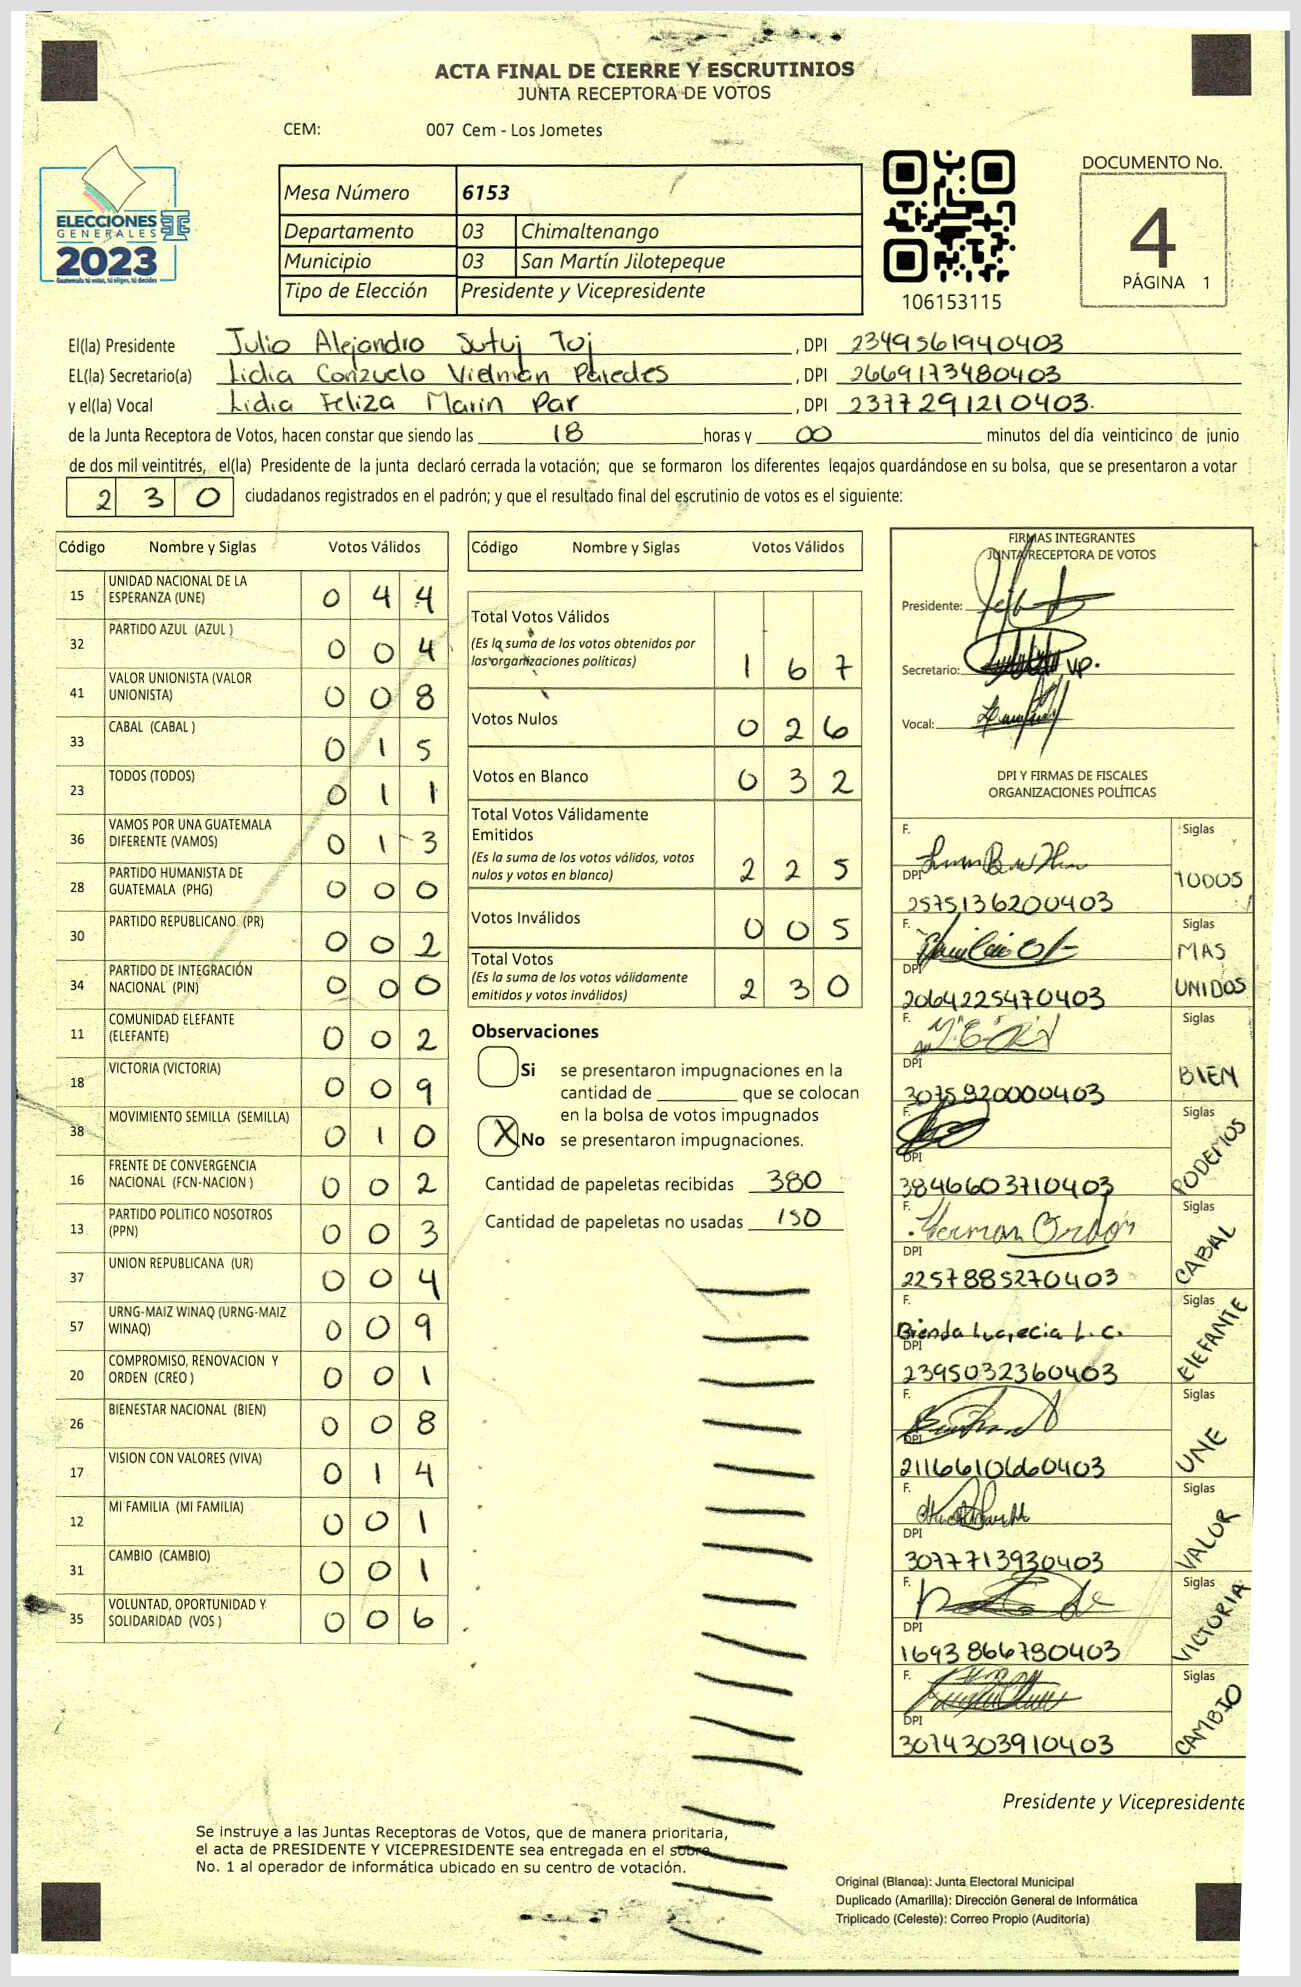 ACTA FINAL DE CIERRE Y ESCRUTINIOS
JUNTA RECEPTORA DE VOTOS
CEM: 007 Cem - Los Jometes
ELECCIONES
GENERALES
2023
Guatemala tú votas, tú eliges, tú decides
Mesa Número 6153
Departamento 03 Chimaltenango
Municipio 03 San Martín Jilotepeque
Tipo de Elección Presidente y Vicepresidente
106153115
DOCUMENTO No.
4
PÁGINA 1
El(la) Presidente Julio Alejandro Sutuj Tuj , DPI 2349561940403
EL(la) Secretario(a) Lidia Conzuelo Vielman Paredes , DPI 2669173480403
y el(la) Vocal Lidia Feliza Marin Par , DPI 2377291210403.
de la Junta Receptora de Votos, hacen constar que siendo las 18 horas y 00 minutos del día veinticinco de junio
de dos mil veintitrés, el(la) Presidente de la junta declaró cerrada la votación; que se formaron los diferentes legajos quardándose en su bolsa, que se presentaron a votar
230 ciudadanos registrados en el padrón; y que el resultado final del escrutinio de votos es el siguiente:
Código Nombre y Siglas Votos Válidos
15 UNIDAD NACIONAL DE LA ESPERANZA (UNE) 0 4 4
32 PARTIDO AZUL (AZUL ) 0 0 4
41 VALOR UNIONISTA (VALOR UNIONISTA) 0 0 8
33 CABAL (CABAL ) 0 1 5
23 TODOS (TODOS) 0 1 1
36 VAMOS POR UNA GUATEMALA DIFERENTE (VAMOS) 0 1 3
28 PARTIDO HUMANISTA DE GUATEMALA (PHG) 0 0 0
30 PARTIDO REPUBLICANO (PR) 0 0 2
34 PARTIDO DE INTEGRACIÓN NACIONAL (PIN) 0 0 0
11 COMUNIDAD ELEFANTE (ELEFANTE) 0 0 2
18 VICTORIA (VICTORIA) 0 0 9
38 MOVIMIENTO SEMILLA (SEMILLA) 0 1 0
16 FRENTE DE CONVERGENCIA NACIONAL (FCN-NACION ) 0 0 2
13 PARTIDO POLITICO NOSOTROS (PPN) 0 0 3
37 UNION REPUBLICANA (UR) 0 0 4
57 URNG-MAIZ WINAQ (URNG-MAIZ WINAQ) 0 0 9
20 COMPROMISO, RENOVACION Y ORDEN (CREO ) 0 0 1
26 BIENESTAR NACIONAL (BIEN) 0 0 8
17 VISION CON VALORES (VIVA) 0 1 4
12 MI FAMILIA (MI FAMILIA) 0 0 1
31 CAMBIO (CAMBIO) 0 0 1
35 VOLUNTAD, OPORTUNIDAD Y SOLIDARIDAD (VOS ) 0 0 6
Código Nombre y Siglas Votos Válidos
Total Votos Válidos
(Es la suma de los votos obtenidos por
las organizaciones políticas) 1 6 7
Votos Nulos 0 2 6
Votos en Blanco 0 3 2
Total Votos Válidamente
Emitidos
(Es la suma de los votos válidos, votos
nulos y votos en blanco) 2 2 5
Votos Inválidos 0 0 5
Total Votos
(Es la suma de los votos válidamente
emitidos y votos inválidos) 2 3 0
Observaciones
Si se presentaron impugnaciones en la
cantidad de ________ que se colocan
en la bolsa de votos impugnados
X No se presentaron impugnaciones.
Cantidad de papeletas recibidas 380
Cantidad de papeletas no usadas 150
FIRMAS INTEGRANTES
JUNTA RECEPTORA DE VOTOS
Presidente:
Secretario: VP.
Vocal:
DPI Y FIRMAS DE FISCALES
ORGANIZACIONES POLÍTICAS
F. Siglas
DPI TODOS
2575136200403
F. Siglas
DPI MAS UNIDOS
2064225470403
F. Siglas
DPI BIEN
3075920000403
F. Siglas
DPI PODEMOS
3846603710403
F. Siglas
DPI CABAL
2257885270403
F. Siglas
Brenda Lucrecia L.C.
DPI ELEFANTE
2395032360403
F. Siglas
DPI UNE
2116610660403
F. Siglas
DPI VALOR
3077713930403
F. Siglas
DPI VICTORIA
1693866780403
F. Siglas
DPI CAMBIO
3074303910403
Presidente y Vicepresidente
Se instruye a las Juntas Receptoras de Votos, que de manera prioritaria,
el acta de PRESIDENTE Y VICEPRESIDENTE sea entregada en el sobre
No. 1 al operador de informática ubicado en su centro de votación.
Original (Blanca): Junta Electoral Municipal
Duplicado (Amarilla): Dirección General de Informática
Triplicado (Celeste): Correo Propio (Auditoría)